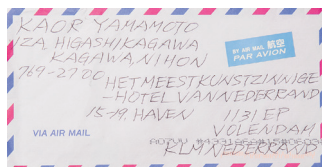 KAOR YAMAMOTO
IZA HIGASHIKAGAWA
KAGAWA, NIHON
769-2700
BY AIR MAIL 航空
PAR AVION
HETMEESTKUNSTZINNIGE
-HOTEL VANNEDERLAND
15-19, HAVEN 1131 EP
VOLENDAM
VIA AIR MAIL